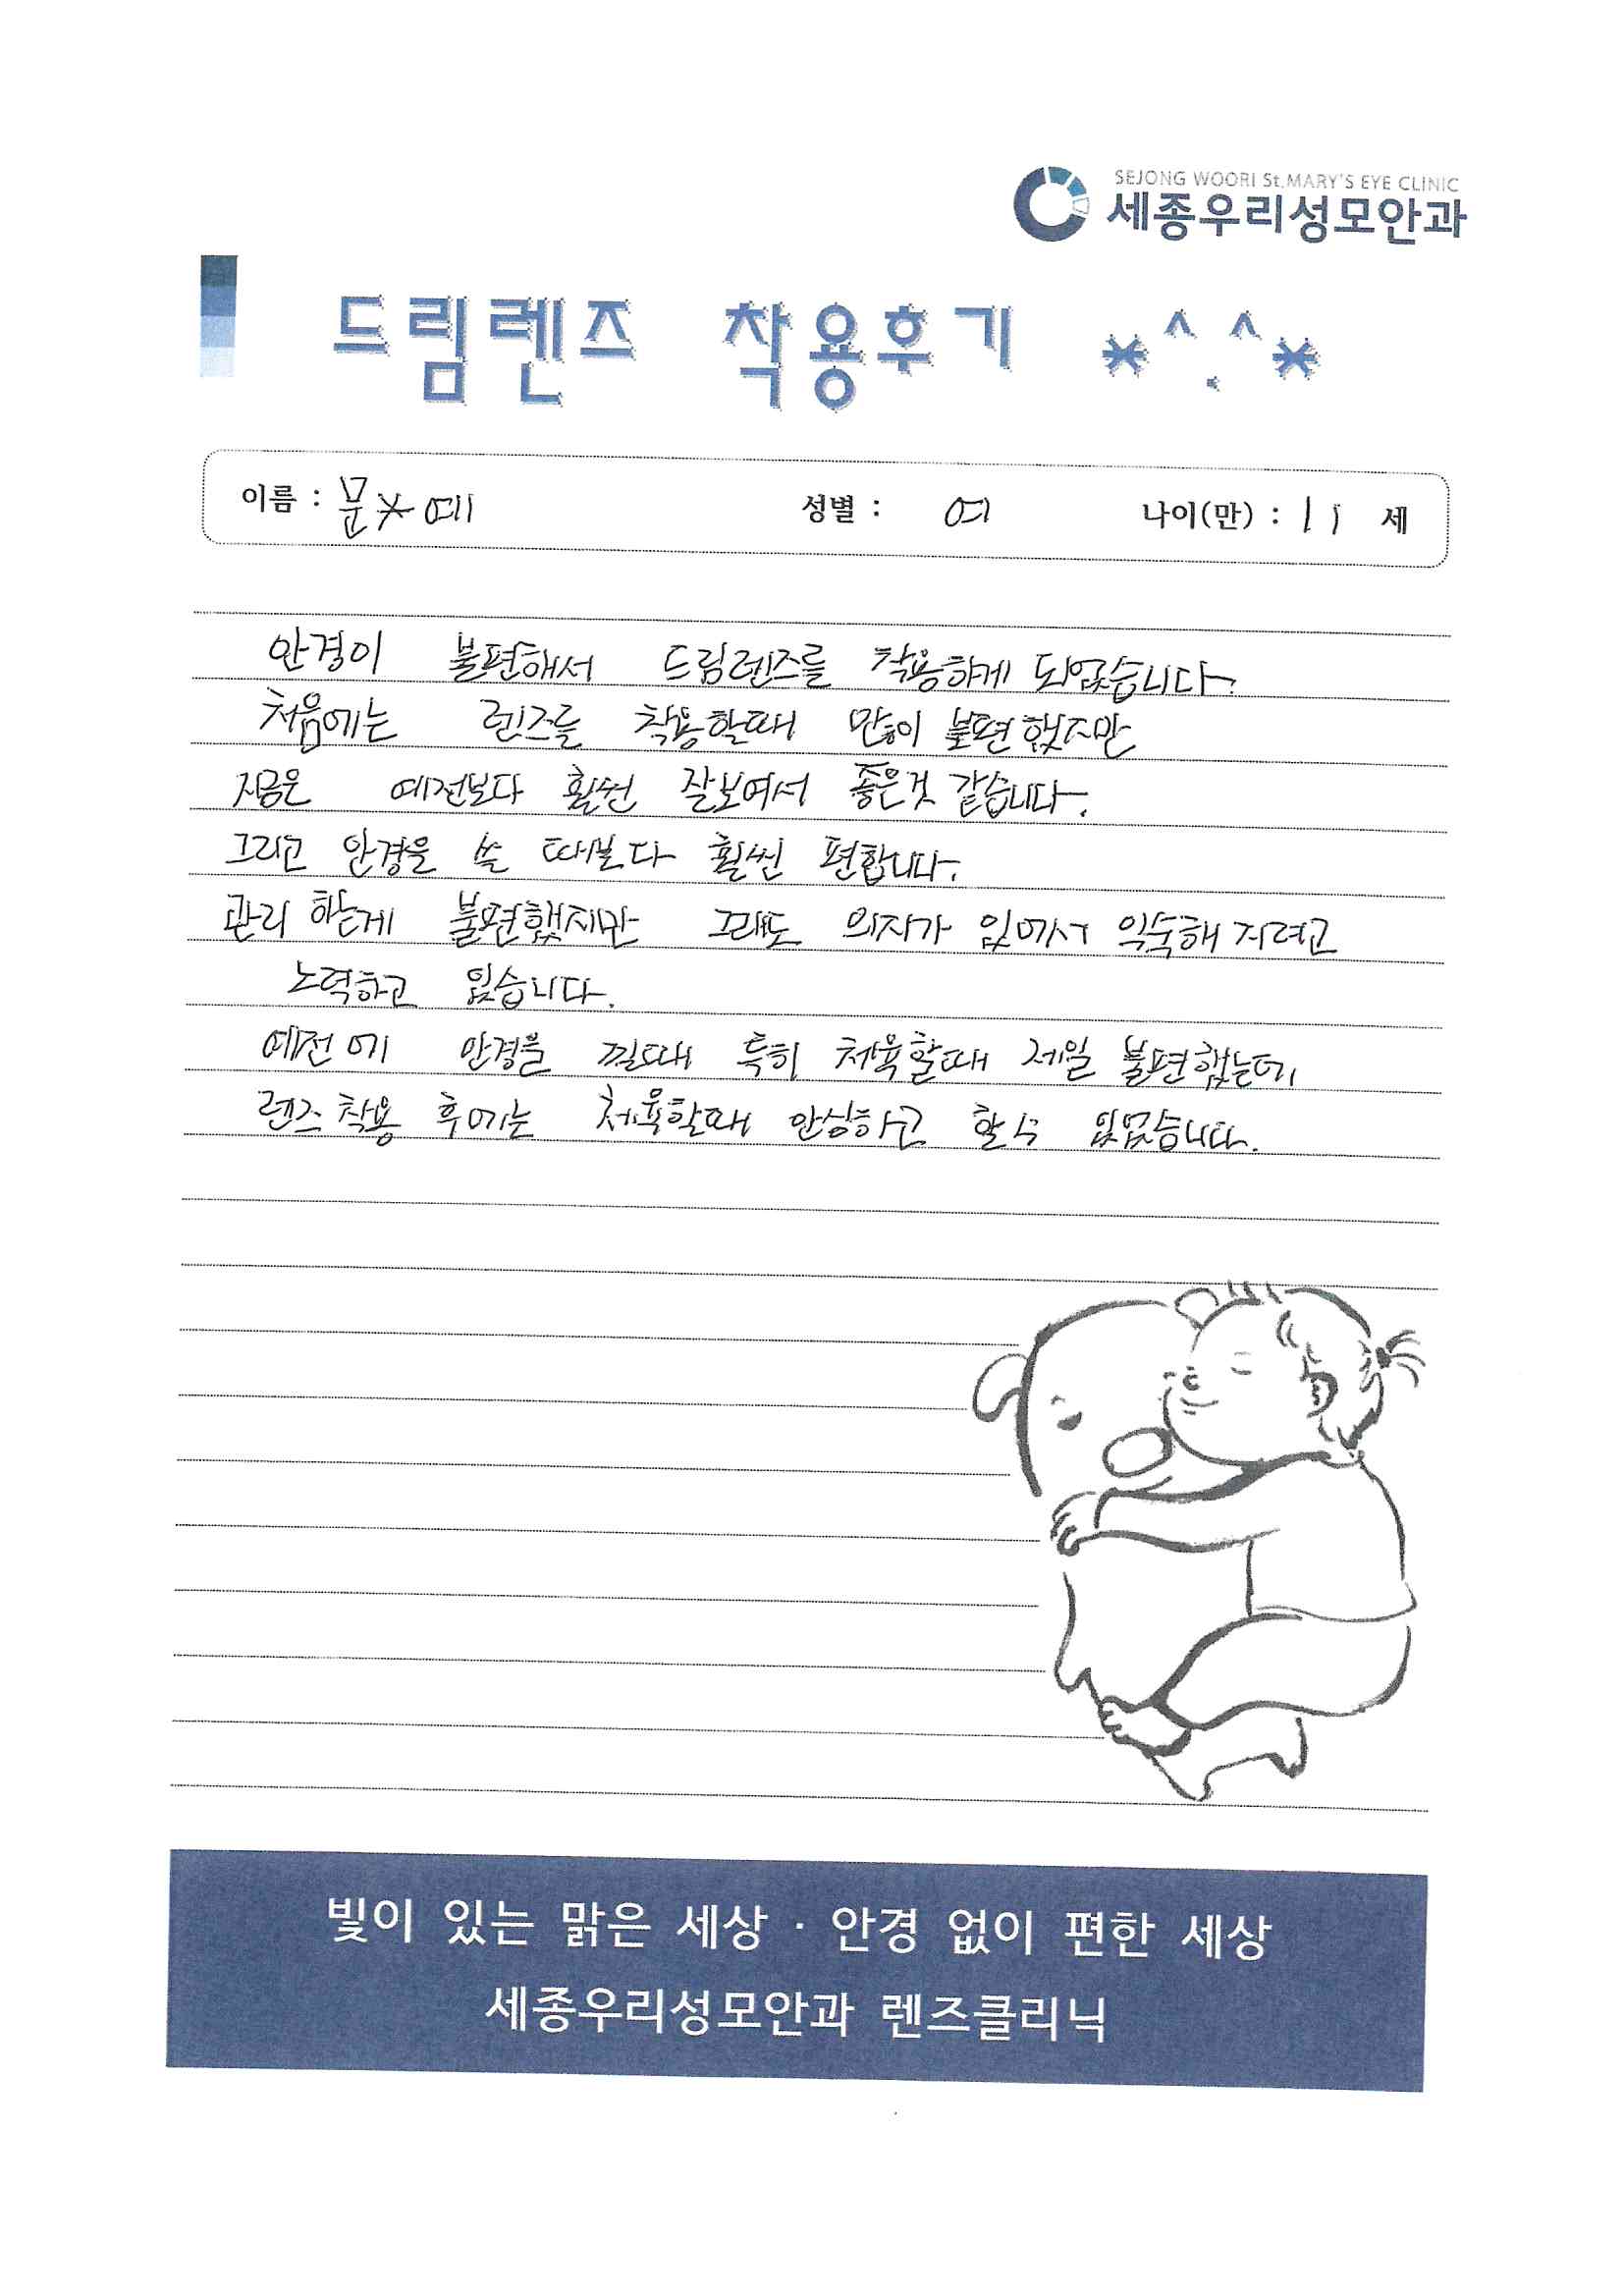 SEJONG WOORI St.MARY'S EYE CLINIC
세종우리성모안과
드림렌즈 착용후기 *^.^*
이름 : 문*예 성별 : 여 나이(만) : 11 세
안경이 불편해서 드림렌즈를 착용하게 되었습니다.
처음에는 렌즈를 착용할때 많이 불편했지만
지금은 예전보다 훨씬 잘보여서 좋은것 같습니다.
그리고 안경을 쓸 때보다 훨씬 편합니다.
관리 하는게 불편했지만 그래도 의지가 있어서 익숙해 지려고
노력하고 있습니다.
예전에 안경을 낄때 특히 체육할때 제일 불편했는데
렌즈 착용 후에는 체육할때 안심하고 할 수 있었습니다.
빛이 있는 맑은 세상 · 안경 없이 편한 세상
세종우리성모안과 렌즈클리닉